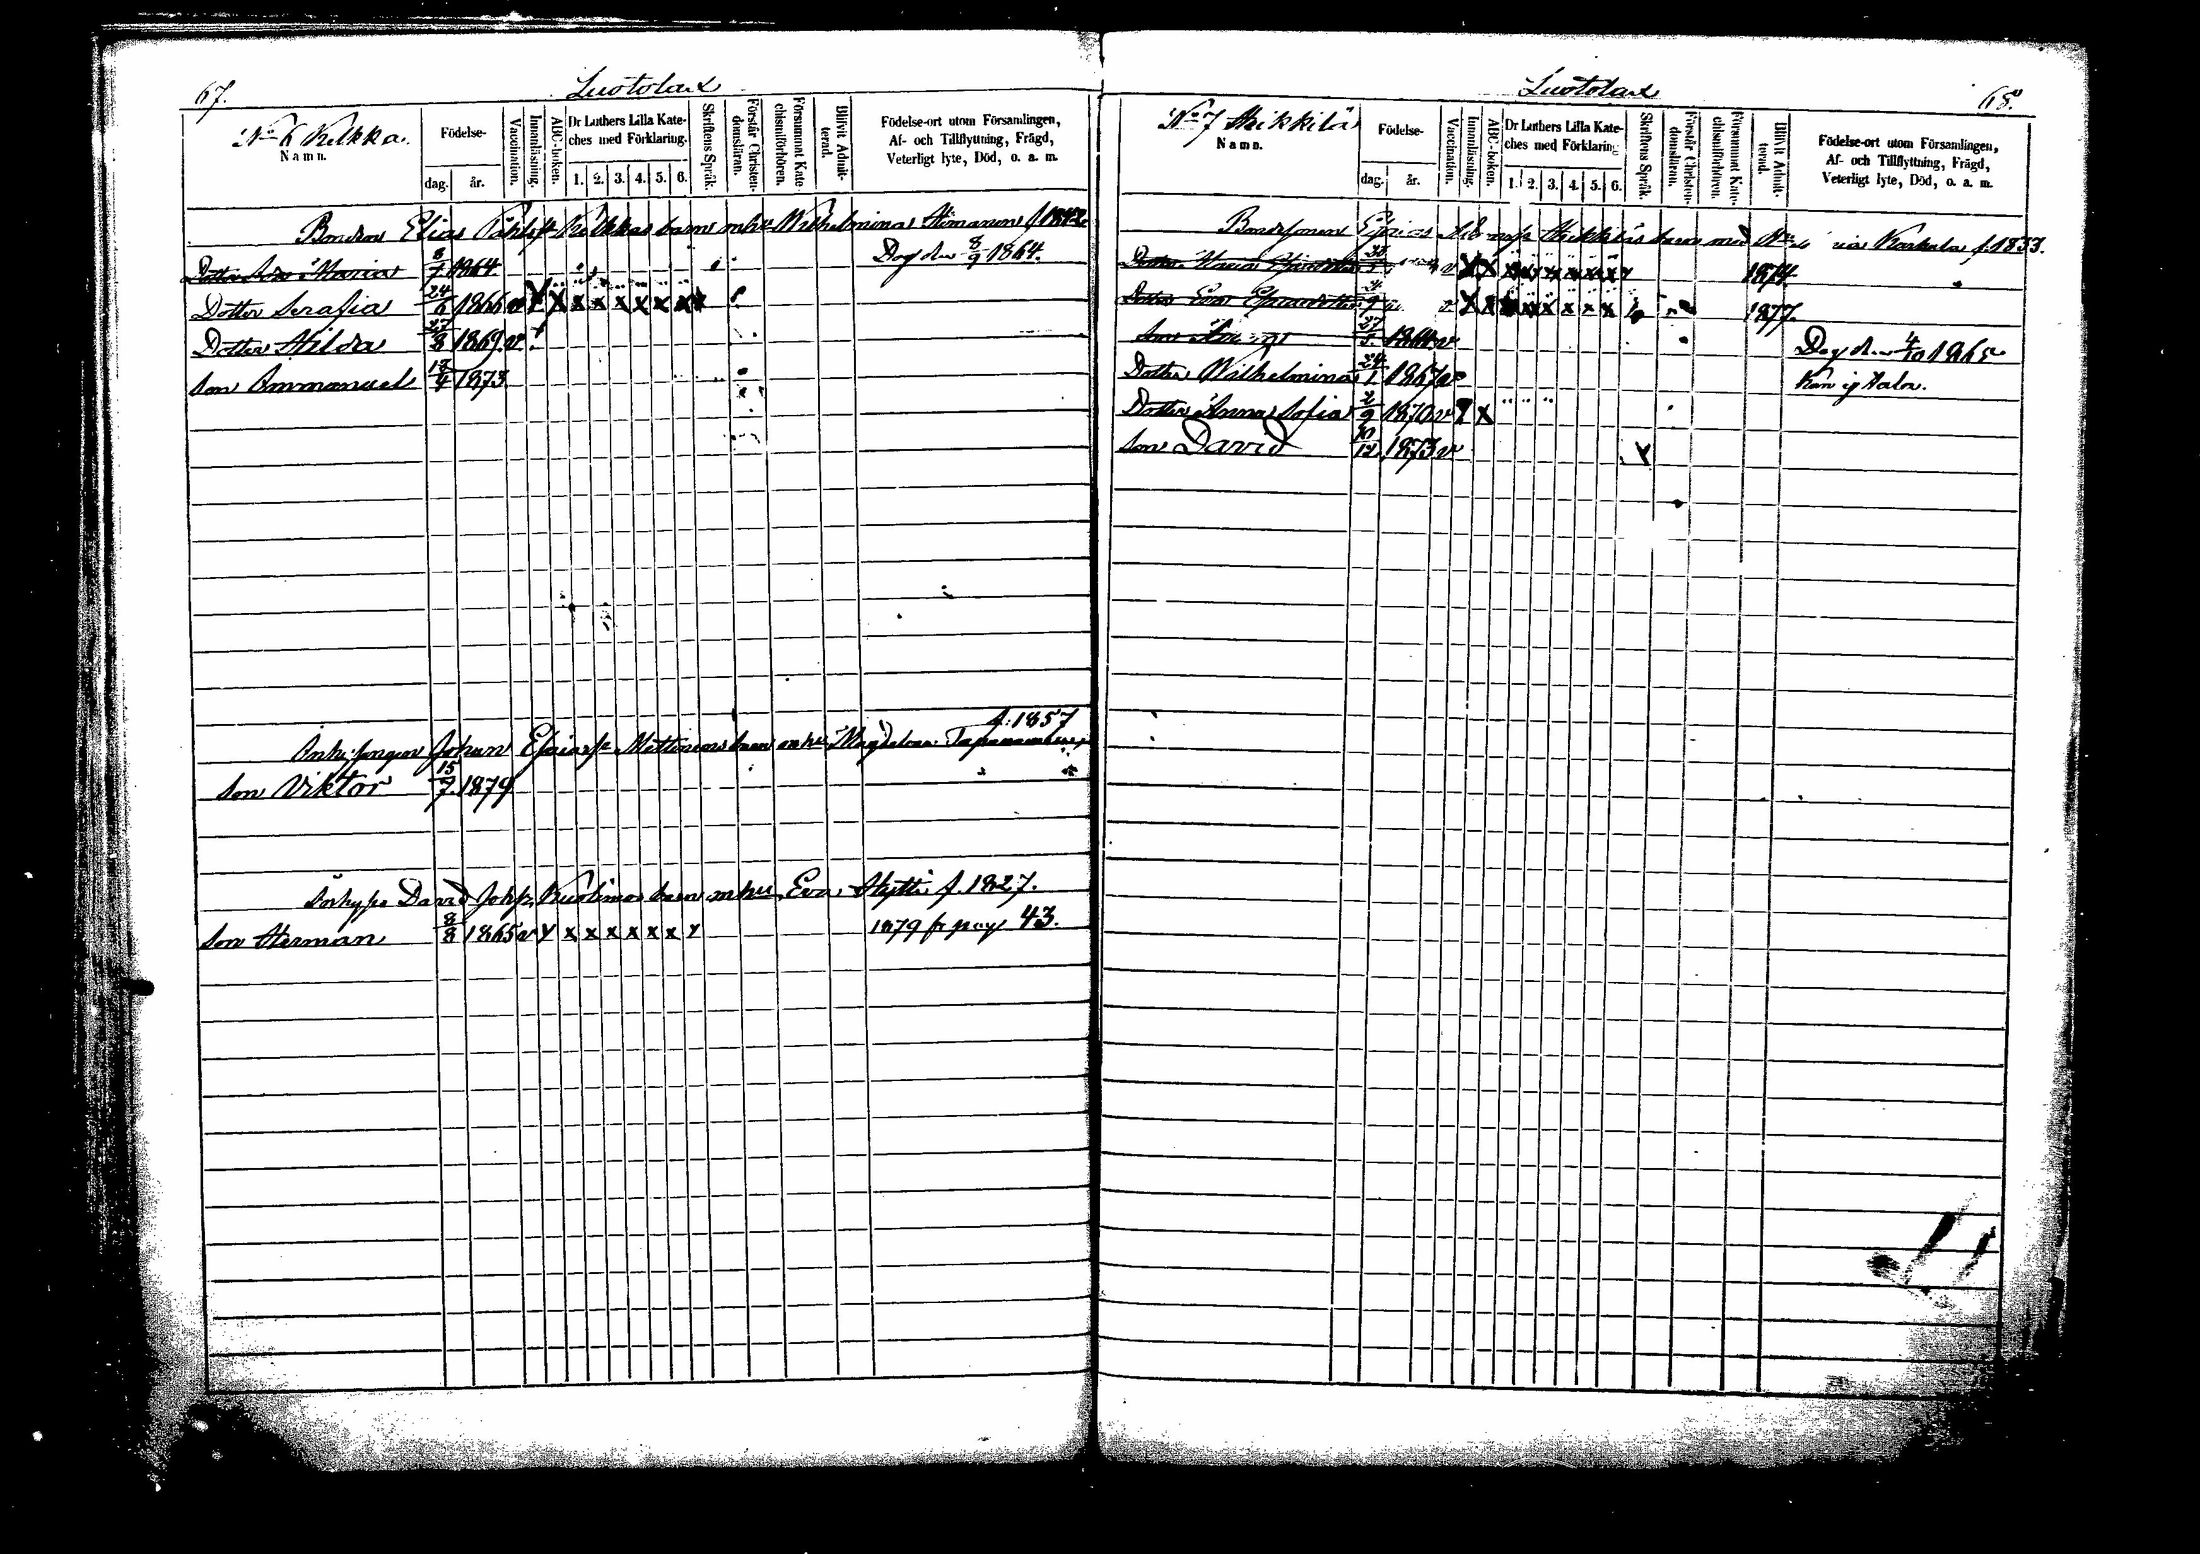 67.
Luotolax
No 6 Kelkka.
Namn.
Födelse-
dag.
år.
Vaccination.
Innanläsning.
ABC-boken.
Dr Luthers Lilla Kate-
ches med Förklaring.
1. 2. 3. 4. 5. 6.
Skriftens Språk.
Förstår Christen-
domsläran.
Försummat Kate-
chismiförhören.
Blifvit Admit-
terad.
Födelse-ort utom Församlingen,
Af- och Tillflyttning, Frägd,
Veterligt lyte, Död, o. a. m.
Bonden Elias Kelkkas barn mhu Wilhelmina Himanen f. 1842
Dotter Maria 8/7 1864. Dog den 8/9 1864.
Dotter Serafia 24/6 1866 v x x x x x x x
Dotter Hilda 27/8 1869 v.
Son Emmanuel 18/4 1873
f. 1857
Johan Esaiass. Mattinens barn mhu Magdalena
Son Viktor 15/7 1879
David Johss. barn mhu Eva Hytti f. 1827.
Son Herman 8/8 1865 v y x x x x x x y 1879 fr pag 43.
Luotolax
68.
No 7 Heikkilä
Namn.
Födelse-
dag.
år.
Vaccination.
Innanläsning.
ABC-boken.
Dr Luthers Lilla Kate-
ches med Förklaring
1. 2. 3. 4. 5. 6.
Skriftens Språk.
Förstår Christen-
domsläran.
Försummat Kate-
chismiförhören.
Blifvit Admit-
terad.
Födelse-ort utom Församlingen,
Af- och Tillflyttning, Frägd,
Veterligt lyte, Död, o. a. m.
Bondesonen Esaias Heikkiläs barn med Karhula f. 1833.
Dotter Maria v x x x x x x x x 1874
Dotter Eva v x x x x x x x x 1877.
Son 27 1864 v Dog den 4/10 1865
Dotter Wilhelmina 24/1 1867 v Kan ej tala.
Dotter Anna Sofia 2/9 1870 v x
Son David 10/12 1873 v